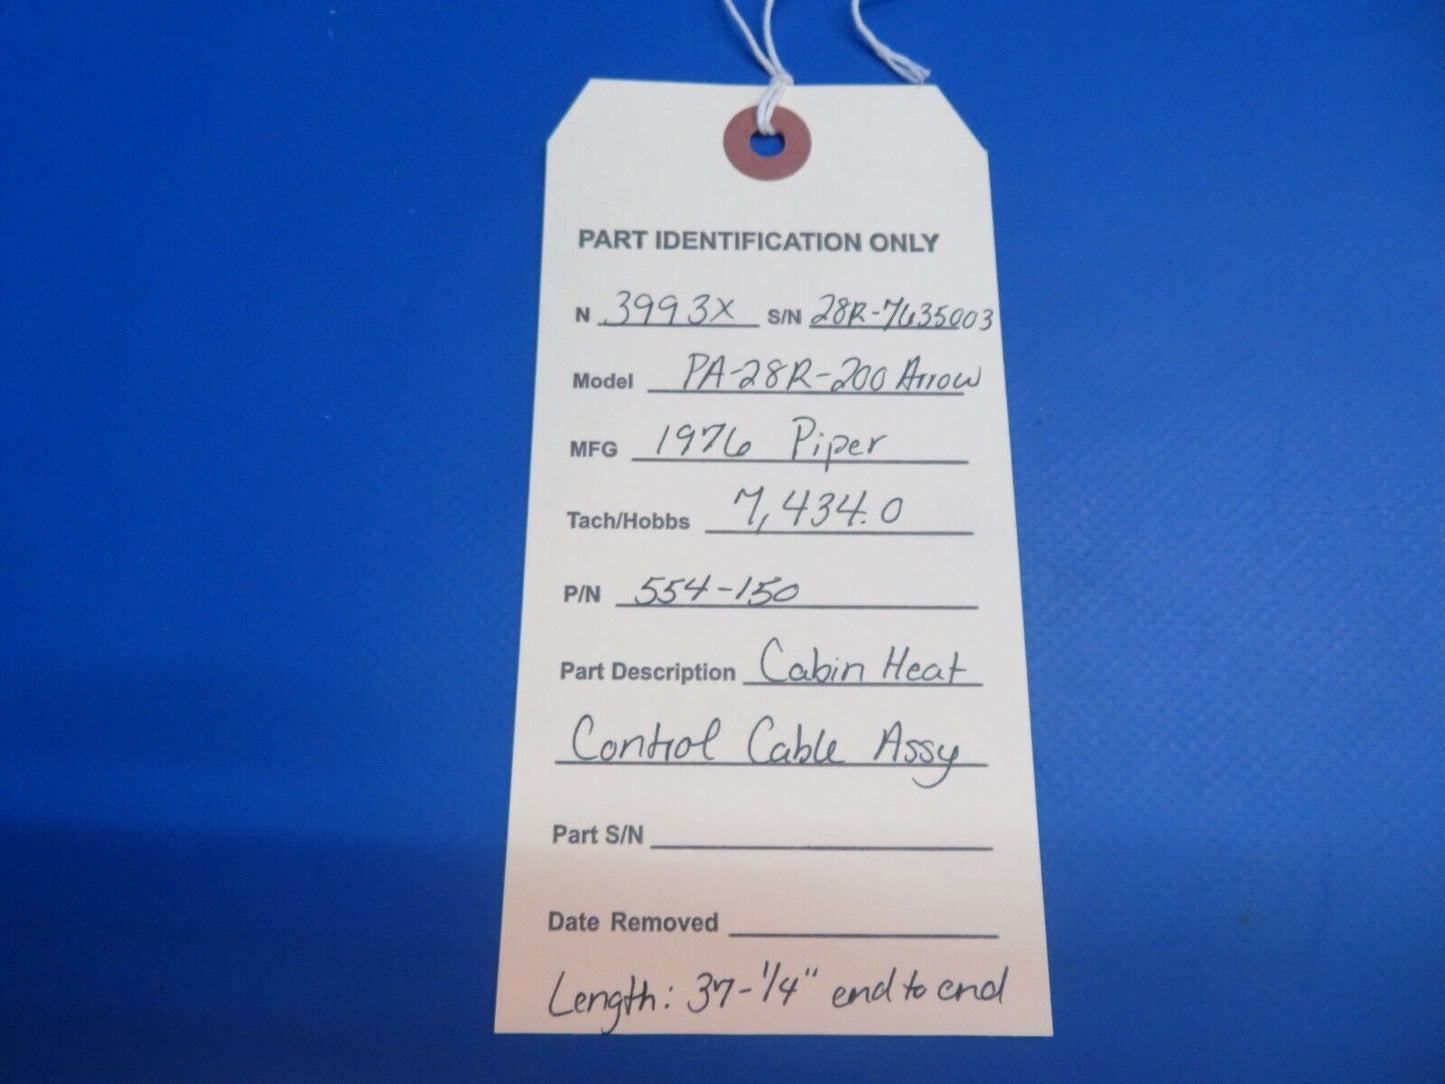 PART IDENTIFICATION ONLY
N 3993X S/N 28R-7635003
Model PA-28R-200 Arrow
MFG 1976 Piper
Tach/Hobbs 7,434.0
P/N 554-150
Part Description Cabin Heat
Control Cable Assy
Part S/N
Date Removed
Length: 37-1/4" end to end